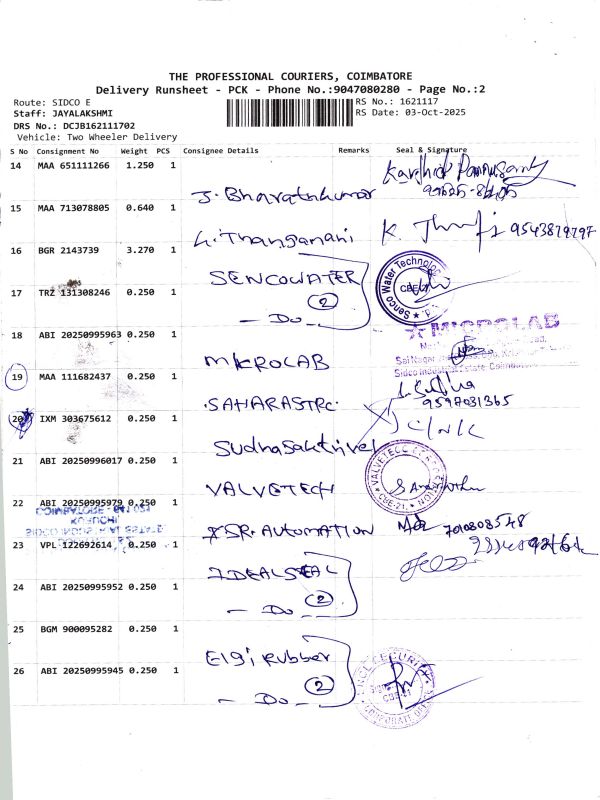 THE PROFESSIONAL COURIERS, COIMBATORE
Delivery Runsheet - PCK - Phone No.:9047080280 - Page No.:2
Route: SIDCO E
RS No.: 1621117
Staff: JAYALAKSHMI
RS Date: 03-Oct-2025
DRS No.: DCJB162111702
Vehicle: Two Wheeler Delivery
S No Consignment No Weight PCS Consignee Details Remarks Seal & Signature
14 MAA 651111266 1.250 1
J. Bharathkumar
15 MAA 713078805 0.640 1
Thangamani K. 9543879797
16 BGR 2143739 3.270 1
SENCOWATER
Senco Water Technolog
CBE
17 TRZ 131308246 0.250 1
2
- Do -
18 ABI 20250995963 0.250 1
MICROLAB
MICROLAB
Sai Nagar
Sidco Industrial Estate, Coimbatore
19 MAA 111682437 0.250 1
SAHARASTRC
9597031365
20 IXM 303675612 0.250 1
Sudhasakthivel
21 ABI 20250996017 0.250 1
VALVETECH
VALVETECC
CBE-21
22 ABI 20250995979 0.250 1
COIMBATORE - 641 021
KURICHI,
SIDCO INDUSTRIAL ESTATE
SR. AUTOMATION 7010808548
23 VPL 122692614 0.250 1
IDEALSEAL
24 ABI 20250995952 0.250 1
2
- Do -
25 BGM 900095282 0.250 1
Elgi Rubber
SECURITY
CBE-21
CORPORATE OFFICE
26 ABI 20250995945 0.250 1
2
- Do -